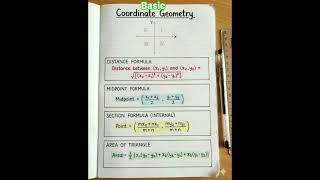 Basic
Coordinate Geometry
Y
II I
III IV
DISTANCE FORMULA
Distance between (x₁, y₁) and (x₂, y₂) =
√[(x₂-x₁)² + (y₂-y₁)²]
MIDPOINT FORMULA
Midpoint = (x₁ + x₂ / 2 , y₁ + y₂ / 2)
SECTION FORMULA (INTERNAL)
Point = (mx₂ + nx₁ / m+n , my₂ + ny₁ / m+n)
AREA OF TRIANGLE
Area = ½ |x₁(y₂-y₃) + x₂(y₃-y₁) + x₃(y₁-y₂)|